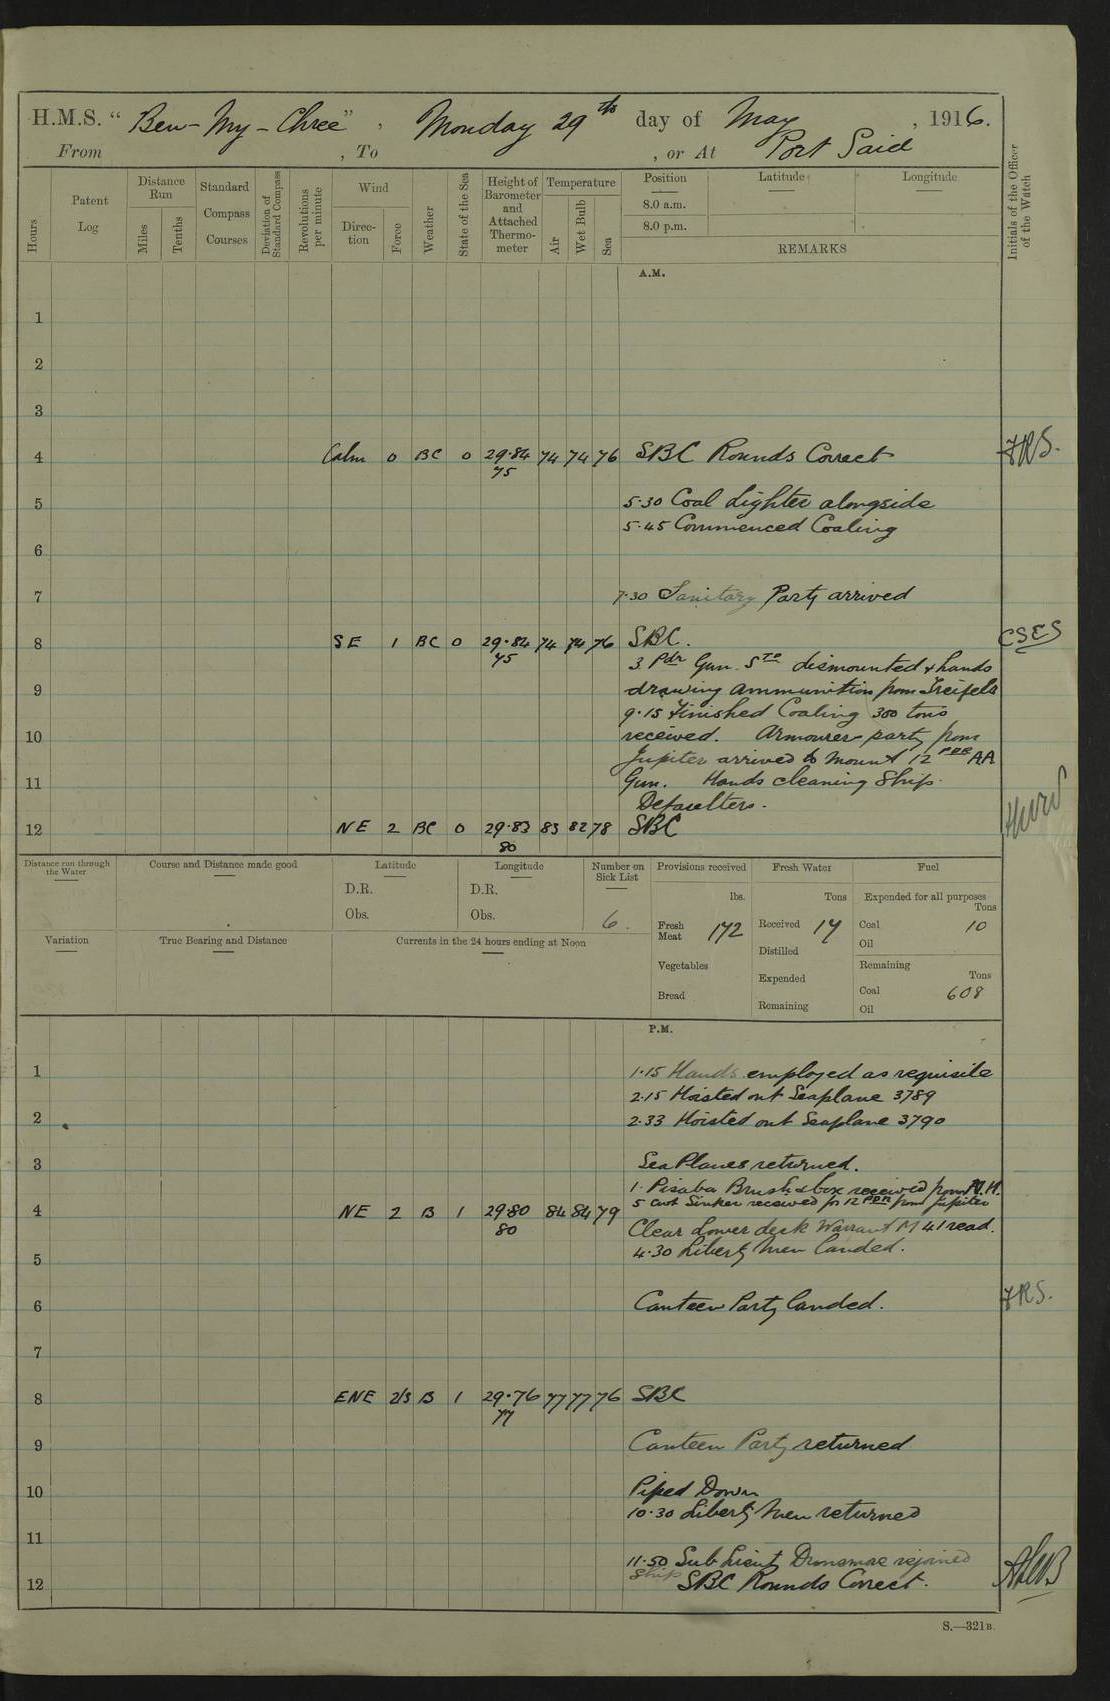 H.M.S. "Ben-My-Chree", Monday 29th day of May, 1916.
From , To , or At Port Said
Hours
Patent Log
Distance Run
Miles
Tenths
Standard Compass Courses
Deviation of Standard Compass
Revolutions per minute
Wind
Direction
Force
Weather
State of the Sea
Height of Barometer and Attached Thermometer
Temperature
Air
Wet Bulb
Sea
Position
Latitude
Longitude
8.0 a.m.
8.0 p.m.
REMARKS
Initials of the Officer of the Watch
A.M.
1
2
3
4 Calm 0 BC 0 29.84 74 74 76 SBC Rounds Correct FRS.
75
5 5.30 Coal Lighter alongside
5.45 Commenced Coaling
6
7 7.30 Sanitary Party arrived
8 SE 1 BC 0 29.84 74 74 76 SBC. CSES
75
3 Pdr Gun dismounted & hands
9 drawing ammunition from
9.15 Finished Coaling 300 tons
10 received. Armourer party from
Jupiter arrived to mount 12 PDR AA
11 Gun. Hands cleaning Ship.
Defaulters.
12 NE 2 BC 0 29.83 83 82 78 SBC
80
Distance run through the Water
Course and Distance made good
Latitude
D.R.
Obs.
Longitude
D.R.
Obs.
Number on Sick List
6
Provisions received
lbs.
Fresh Meat 172
Vegetables
Bread
Fresh Water
Tons
Received 17
Distilled
Expended
Remaining
Fuel
Expended for all purposes
Tons
Coal 10
Oil
Remaining
Tons
Coal 608
Oil
Variation
True Bearing and Distance
Currents in the 24 hours ending at Noon
P.M.
1 1.15 Hands employed as requisite
2.15 Hoisted out Seaplane 3789
2 2.33 Hoisted out Seaplane 3790
3 SeaPlanes returned.
1. Brush & box received from
5 cwt received for 12 PDR from Jupiter
4 NE 2 B 1 29.80 84 84 79
80
Clear Lower deck Warrant 41 read.
4.30 Liberty Men landed.
5
6 Canteen Party landed. FRS.
7
8 ENE 2/3 B 1 29.76 77 77 76 SBC
77
9 Canteen Party returned
10 Piped Down
10.30 Liberty Men returned
11
11.50 Sub Lieut rejoined
ship
12 SBC Rounds Correct.
S.—321B.